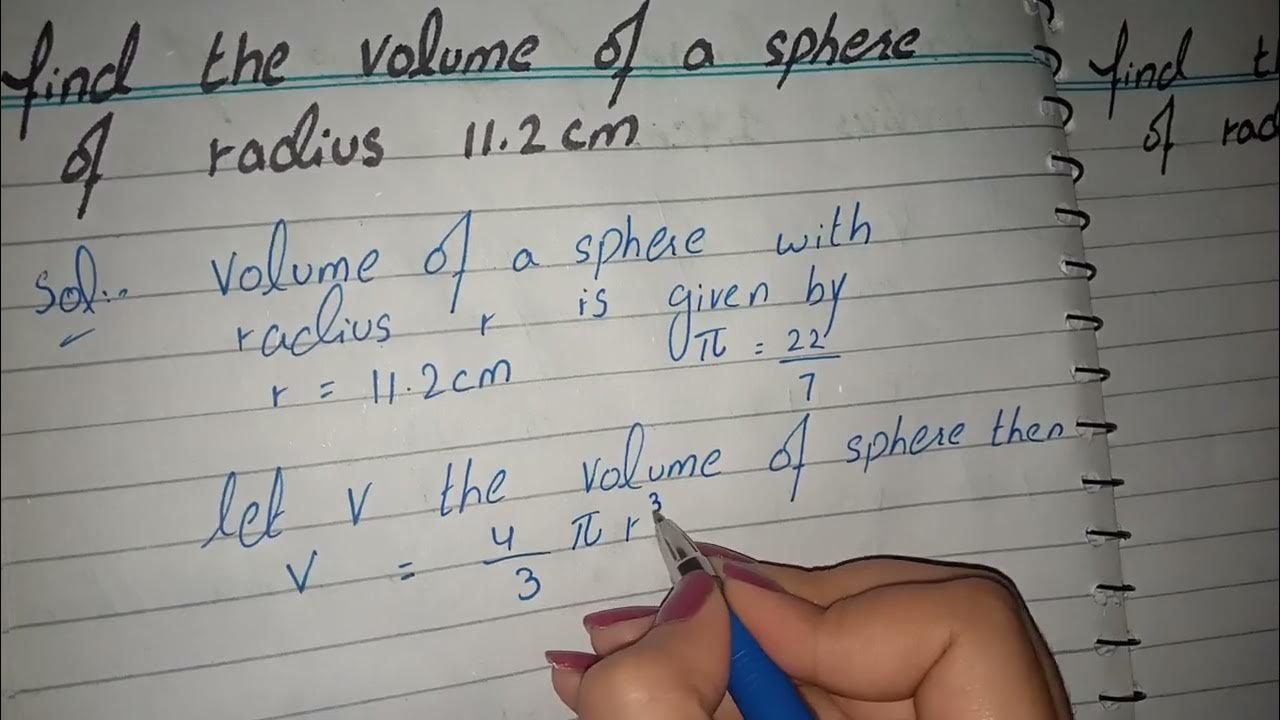 find the volume of a sphere
of radius 11.2 cm
Sol:. Volume of a sphere with
radius r is given by
r = 11.2 cm π = 22/7
let v the volume of sphere then
v = 4/3 π r³
find t
of rad